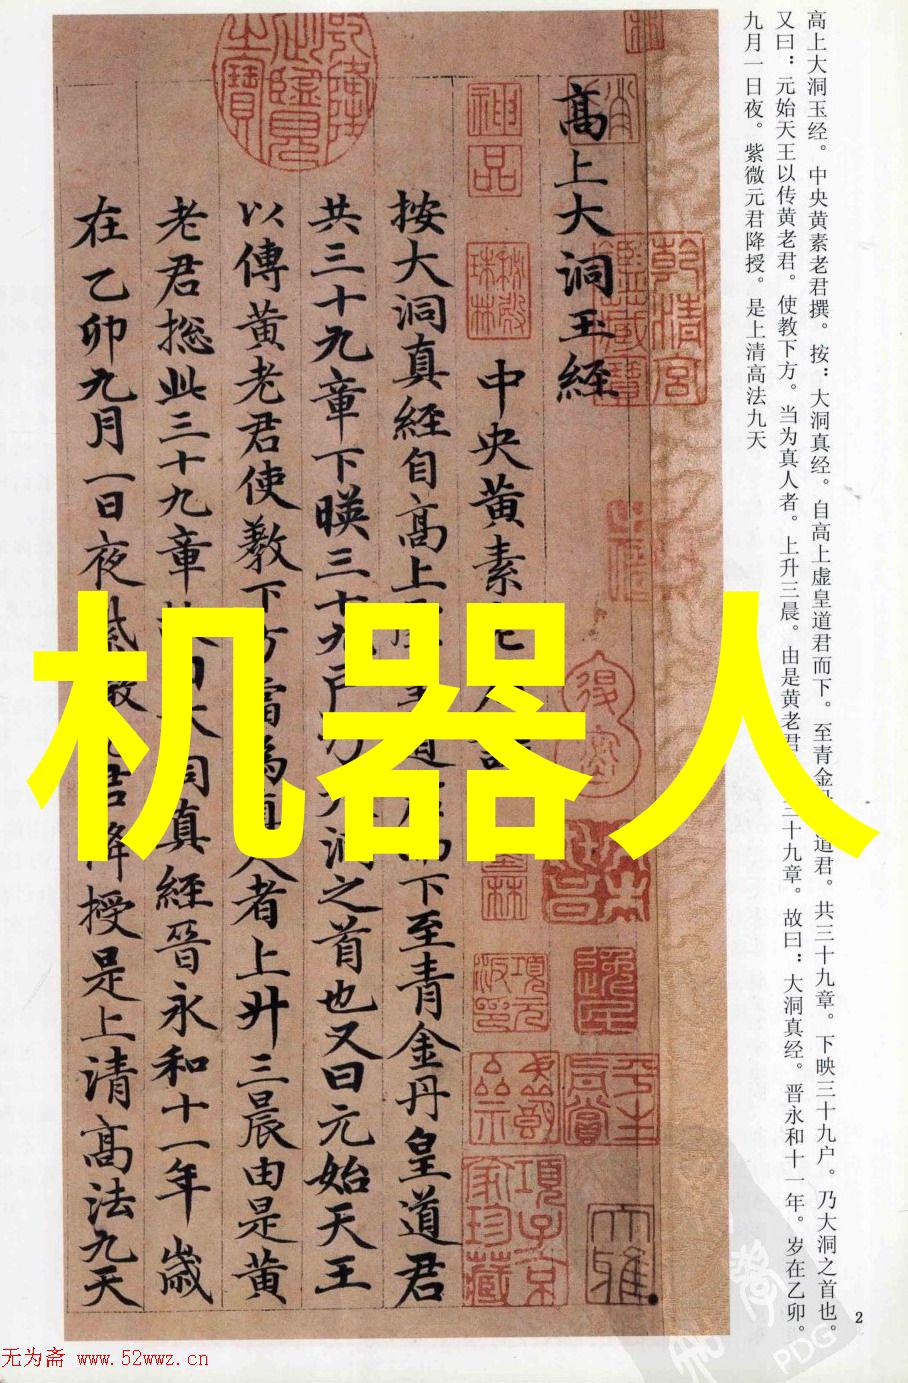 高上大洞玉经。中央黄素老君撰。按：大洞真经。自高上虚皇道君而下。至青金 道君。共三十九章。下映三十九户。乃大洞之首也。
又曰：元始天王以传黄老君。使教下方。当为真人者。上升三晨。由是黄老君 三十九章。故曰：大洞真经。晋永和十一年。岁在乙卯。
九月一日夜。紫微元君降授。是上清高法九天
乾清宫鉴藏宝
高上大洞玉經
神品
中央黄素
按大洞真經自髙上 道 而下至青金丹皇道君
共三十九章下暎三十九户乃大洞之首也又曰元始天王
以傳黄老君使教下方當為真人者上升三晨由是黄
老君揔此三十九章 曰大洞真經晉永和十一年歲
在乙卯九月一日夜紫 君降授是上清髙法九天
项元汴印
項子京家珍藏
机器人
2
PDG
无为斋 www.52wwz.cn